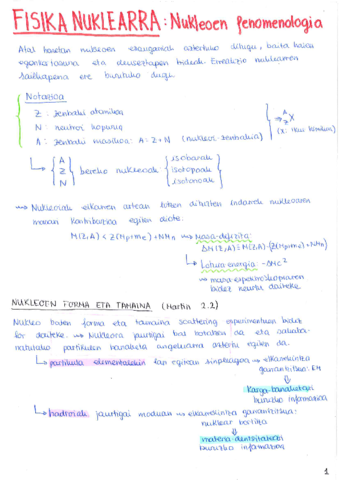 FISIKA NUKLEARRA: Nukleoen fenomenologia
Atal honetan nukleoen ezaugarriak aztertuko ditugu, baita haien
egonkortasuna eta desintegrazio bideak. Erreakzio nuklearren
sailkapena ere burutuko dugu.
Notazioa
Z : zenbaki atomikoa
N : neutroi kopurua
A : zenbaki masikoa: A = Z + N (nukleoi-zenbakia)
⇒ A Z X
(X: ikur kimikoa)
A
Z
N
bereko nukleoak
isobaroak
isotopoak
isotonoak
Nukleoiak elkarren artean lotzen dituzten indarrek nukleoaren
masan kontribuzioa egiten diote:
M(Z,A) < Z(Mp+me) + NMn ⇒ Masa-defizita:
ΔM(Z,A) ≡ M(Z,A) - (Z(Mp+me) + NMn)
Lotura energia: -ΔMc²
masa-espektroskopiaren
bidez neurtu daiteke.
NUKLEOEN FORMA ETA TAMAINA (Martin 2.2)
Nukleo baten forma eta tamaina scattering esperimentuen bidez
Nukleora jaurtigai bat botatzen da eta
partikulen banaketa angeluarra aztertu egiten da.
partikula elementalekin lan egitean sinpleagoa ⇒ elkarrekintza
EM
karga-banaketari
buruzko informazioa
hadroiak jaurtigai moduan ⇒ elkarrekintza
nuklear bortitza
materia-dentsitateari
buruzko informazioa
1